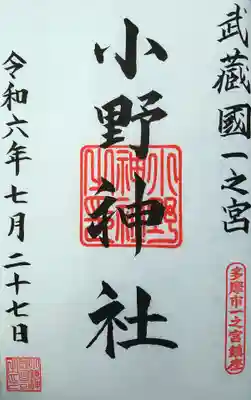 武蔵國一之宮
多摩市一之宮鎮座
小野神社
令和六年七月二十七日